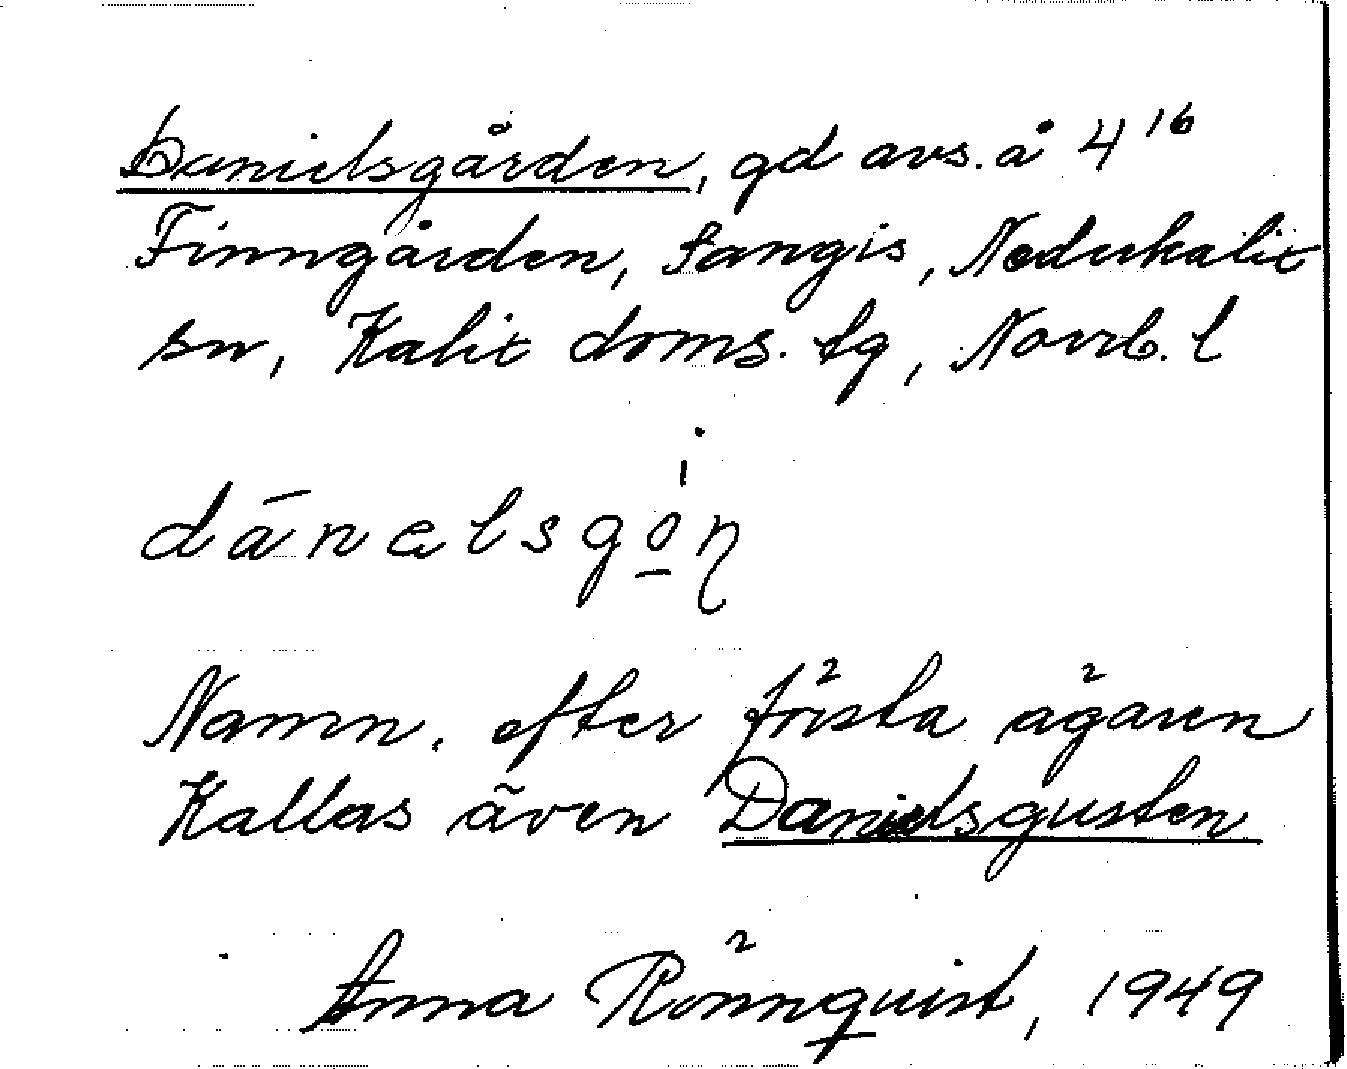 Danielsgården, gd avs. å 4¹⁶
Finngården, Sangis, Nederkalix
sn, Kalix doms. tg, Norrb. l
dánelsgọ̄n
Namn. efter första ägaren
Kallas även Danielsgusten
Anna Rönnquist, 1949